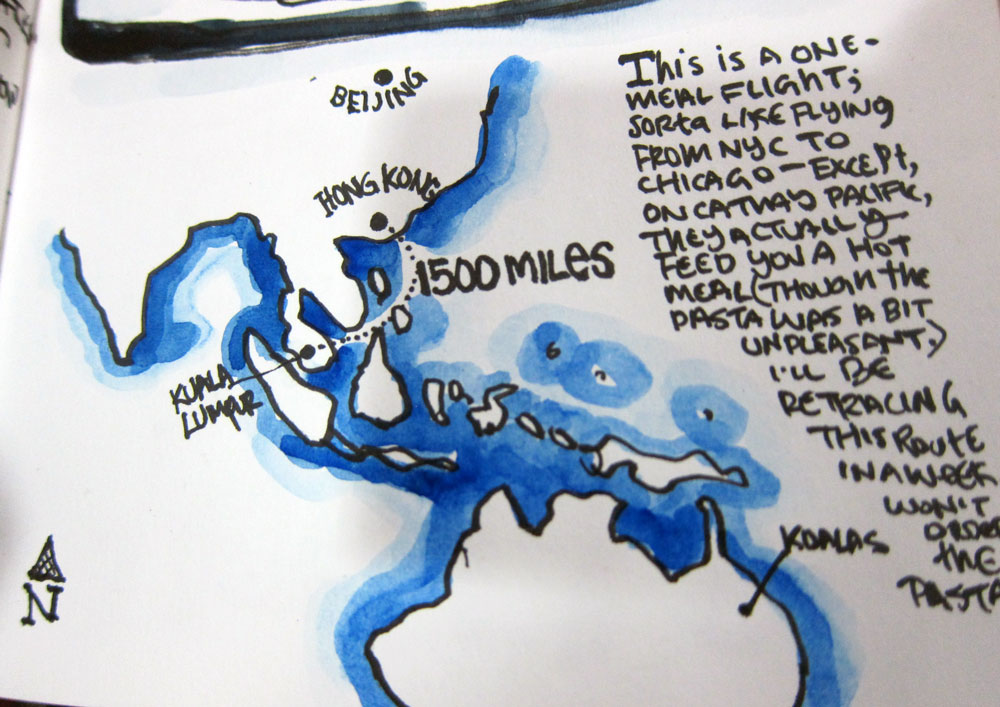 BEIJING
HONG KONG
1500 MILES
KUALA
LUMPUR
N
KOALAS
This is A ONE-
MEAL FLIGHT;
SORTA LIKE FLYING
FROM NYC TO
CHICAGO — EXCEPT,
ON CATHAY PACIFIC,
THEY ACTUALLY
FEED YOU A HOT
MEAL (THOUGH the
PASTA WAS A BIT
UNPLEASANT.)
I'LL BE
RETRACING
THIS ROUTE
IN A WEEK
WON'T
ORDER
the
PASTA